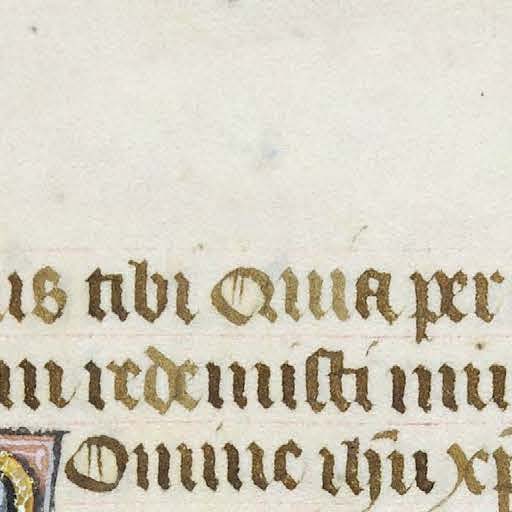 us tibi Quia per
m redemisti mu
Domine ihũ xp